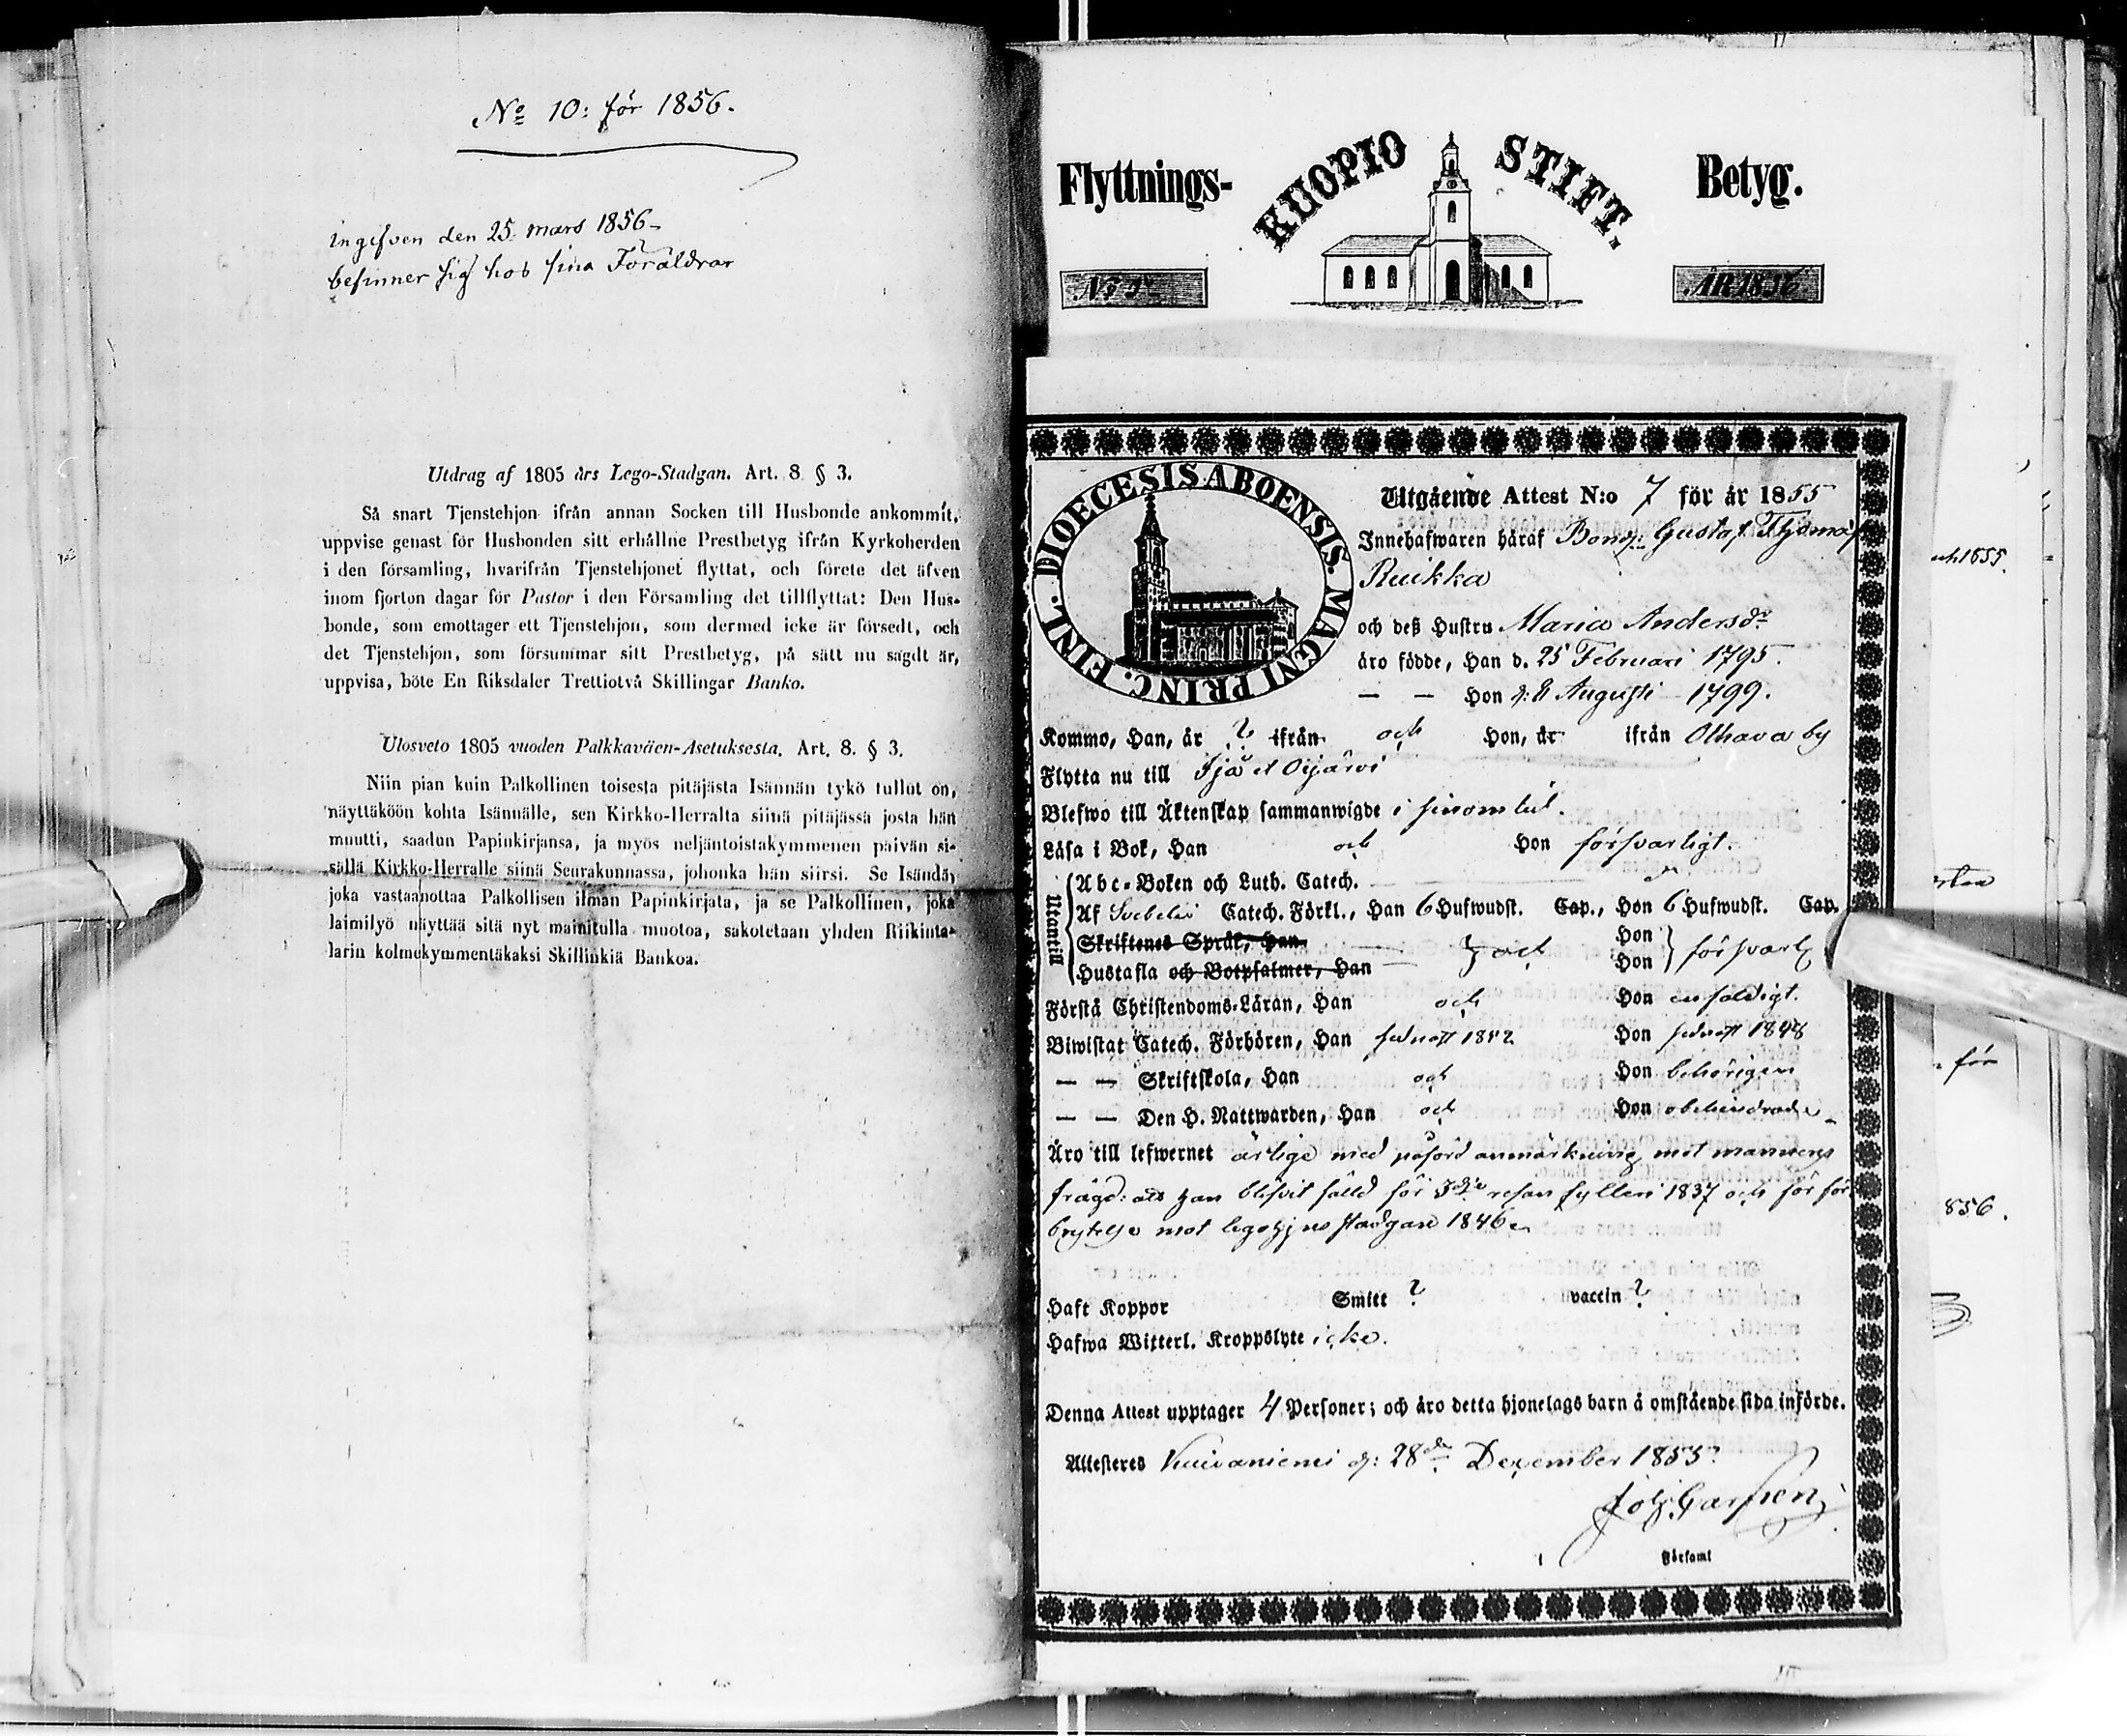 No 10: för 1856.
ingifven den 25 mars 1856
befinner sig hos sina Föräldrar
Utdrag af 1805 års Lego-Stadgan. Art. 8 § 3.
Så snart Tjenstehjon ifrån annan Socken till Husbonde ankommit,
uppvise genast för Husbonden sitt erhållne Prestbetyg ifrån Kyrkoherden
i den församling, hvarifrån Tjenstehjonet flyttat, och förete det äfven
inom fjorton dagar för Pastor i den Församling det tillflyttat: Den Hus-
bonde, som emottager ett Tjenstehjon, som dermed icke är försedt, och
det Tjenstehjon, som försummar sitt Prestbetyg, på sätt nu sagdt är,
uppvisa, böte En Riksdaler Trettiotvå Skillingar Banko.
Ulosveto 1805 vuoden Palkkaväen-Asetuksesta. Art. 8. § 3.
Niin pian kuin Palkollinen toisesta pitäjästa Isännän tykö tullut on,
näyttäköön kohta Isännälle, sen Kirkko-Herralta siinä pitäjässä josta hän
muutti, saadun Papinkirjansa, ja myös neljäntoistakymmenen päivän si-
sällä Kirkko-Herralle siinä Seurakunnassa, johonka hän siirsi. Se Isändä,
joka vastaanottaa Palkollisen ilman Papinkirjata, ja se Palkollinen, joka
laimilyö näyttää sitä nyt mainitulla muotoa, sakotetaan yhden Riikinta-
larin kolmekymmentäkaksi Skillinkiä Bankoa.
Flyttnings- KUOPIO STIFT. Betyg.
ÅR 1856
DIOECESIS ABOENSIS MAGNI PRINC. FINL.
Utgående Attest N:o 7 för år 1855
Innehafwaren häraf Bond: Gustaf
Ruikka
och deß Hustru Maria Andersdr
äro födde, Han d. 25 Februari 1795.
— — Hon d: 8 Augusti 1799.
Kommo, Han, år ? ifrån och Hon, år ifrån Olhava by
Flytta nu till Ijå
Blefwo till Äktenskap sammanwigde i sinom tid.
Läsa i Bok, Han och Hon försvarligt.
Utantill
Abc-Boken och Luth. Catech.
Af Svebelii Catech. Förkl., Han 6 Hufwudst. Cap., Hon 6 Hufwudst. Cap.
Skriftenes Språk, Han Hon
Hustafla och Botpsalmer, Han och Hon försvarl
Förstå Christendoms-Läran, Han och Hon enfaldigt.
Biwistat Catech. Förhören, Han sednast 1852 Hon sednast 1848
— — Skriftskola, Han och Hon behörigen
— — Den H. Nattwarden, Han och Hon obehindrade
Äro till lefwernet ärlige med påförd anmärkning mot mannens
frägd: att han blifvit fälld för 3dje resan fylleri 1837 och för för
brytelse mot legohjons stadgan 1846
Haft Koppor Smitt ? vaccin ?
Hafwa Witterl. Kroppslyte icke.
Denna Attest upptager 4 Personer; och äro detta hjonelags barn å omstående sida införde.
Attesteres Kuivaniemi d: 28de December 1855.
Församl
1855.
för
856.